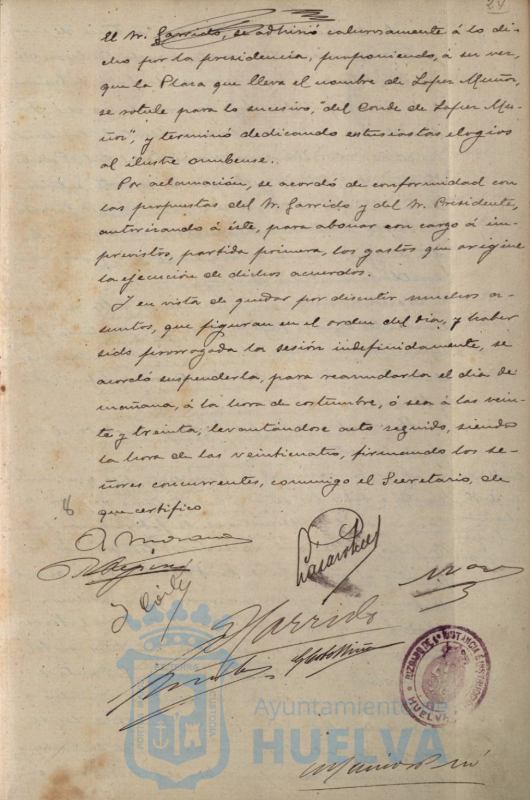 24
El Sr. Garrido, se adhirió calurosamente á lo di-
cho por la presidencia, proponiendo, á su vez,
que la Plaza que lleva el nombre de Lopez Muñoz,
se rotule para lo sucesivo, "del Conde de Lopez Mu-
ñoz", y terminó dedicando entusiastas elogios
al ilustre onubense.
Por aclamación, se acordó de conformidad con
las propuestas del Sr. Garrido y del Sr. Presidente,
autorizando á éste, para abonar con cargo á im-
previstos, partida primera, los gastos que origine
la ejecución de dichos acuerdos.
Y en vista de quedar por discutir muchos a-
suntos, que figuran en el orden del día, y haber
sido prorrogada la sesión indefinidamente, se
acordó suspenderla, para reanudarla el día de
mañana, á la hora de costumbre, ó sea á las vein-
te y treinta, levantándose acto seguido, siendo
la hora de las veinticuatro, firmando los se-
ñores concurrentes, conmigo el Secretario, de
que certifico
A Moreno
Garrido
HUELVA
Ayuntamiento de
HUELVA